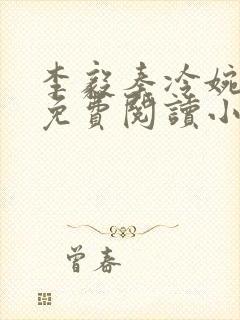 李毅秦冷婉
免費閱讀小
曾春